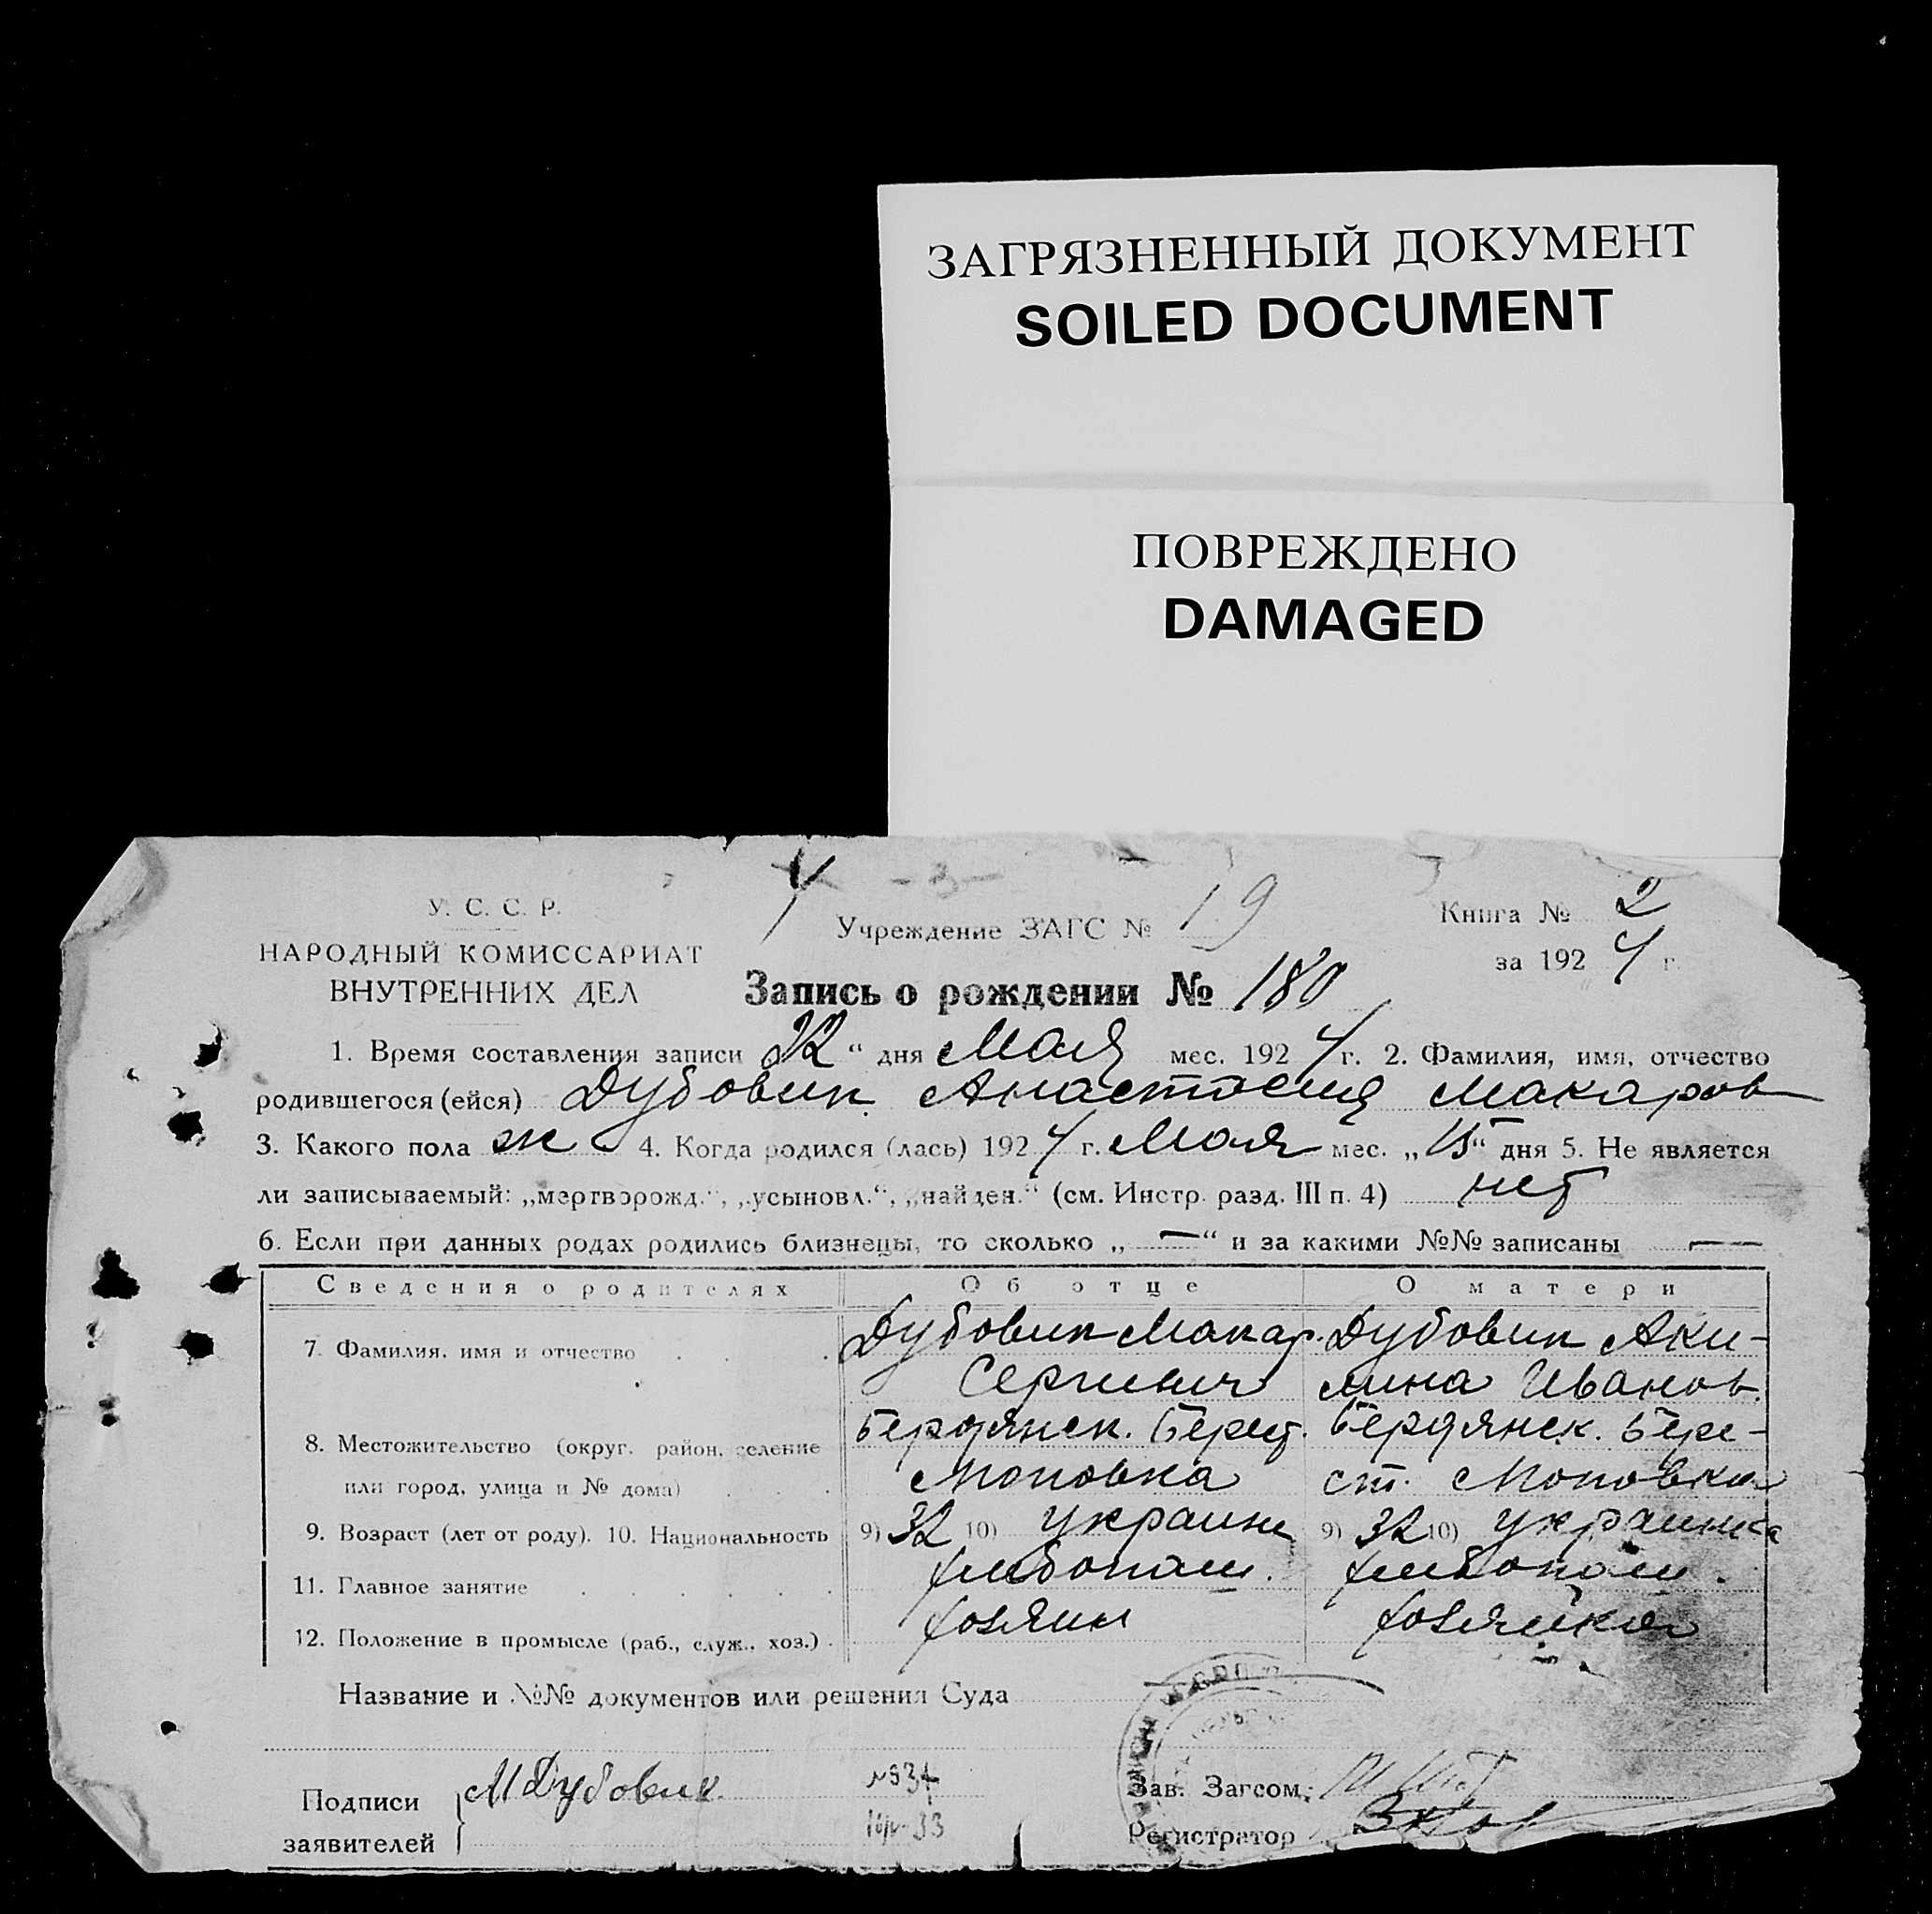 ЗАГРЯЗНЕННЫЙ ДОКУМЕНТ
SOILED DOCUMENT
ПОВРЕЖДЕНО
DAMAGED
У. С. С. Р.
НАРОДНЫЙ КОМИССАРИАТ
ВНУТРЕННИХ ДЕЛ
Учреждение ЗАГС № 19
Книга № 2
за 1924 г.
Запись о рождении № 180
1. Время составления записи 22 “ дня Мая мес. 1924 г. 2. Фамилия, имя, отчество
родившегося (ейся) Дубовик Анастасия Макаров
3. Какого пола ж 4. Когда родился (лась) 1924 г. Мая мес. „15“ дня 5. Не является
ли записываемый: „мертворожд.“, „усыновл.“, „найден.“ (см. Инстр. разд. III п. 4) нет
6. Если при данных родах родились близнецы, то сколько „—“ и за какими №№ записаны —
Сведения о родителях Об отце О матери
7. Фамилия, имя и отчество Дубовик Макар. Дубовик Аки-
Сергиевич лина Иванов.
8. Местожительство (округ, район, селение Бердянск. Берест. Бердянск. Бере-
или город, улица и № дома) Поповка ст. Поповка
9. Возраст (лет от роду). 10. Национальность 9) 32 10) украин 9) 32 10) украинка
11. Главное занятие хлебопаш. хлебопаш.
12. Положение в промысле (раб., служ., хоз.) хозяин хозяйка
Название и №№ документов или решения Суда
Подписи М Дубовик №937
заявителей
Зав. Загсом:
Регистратор